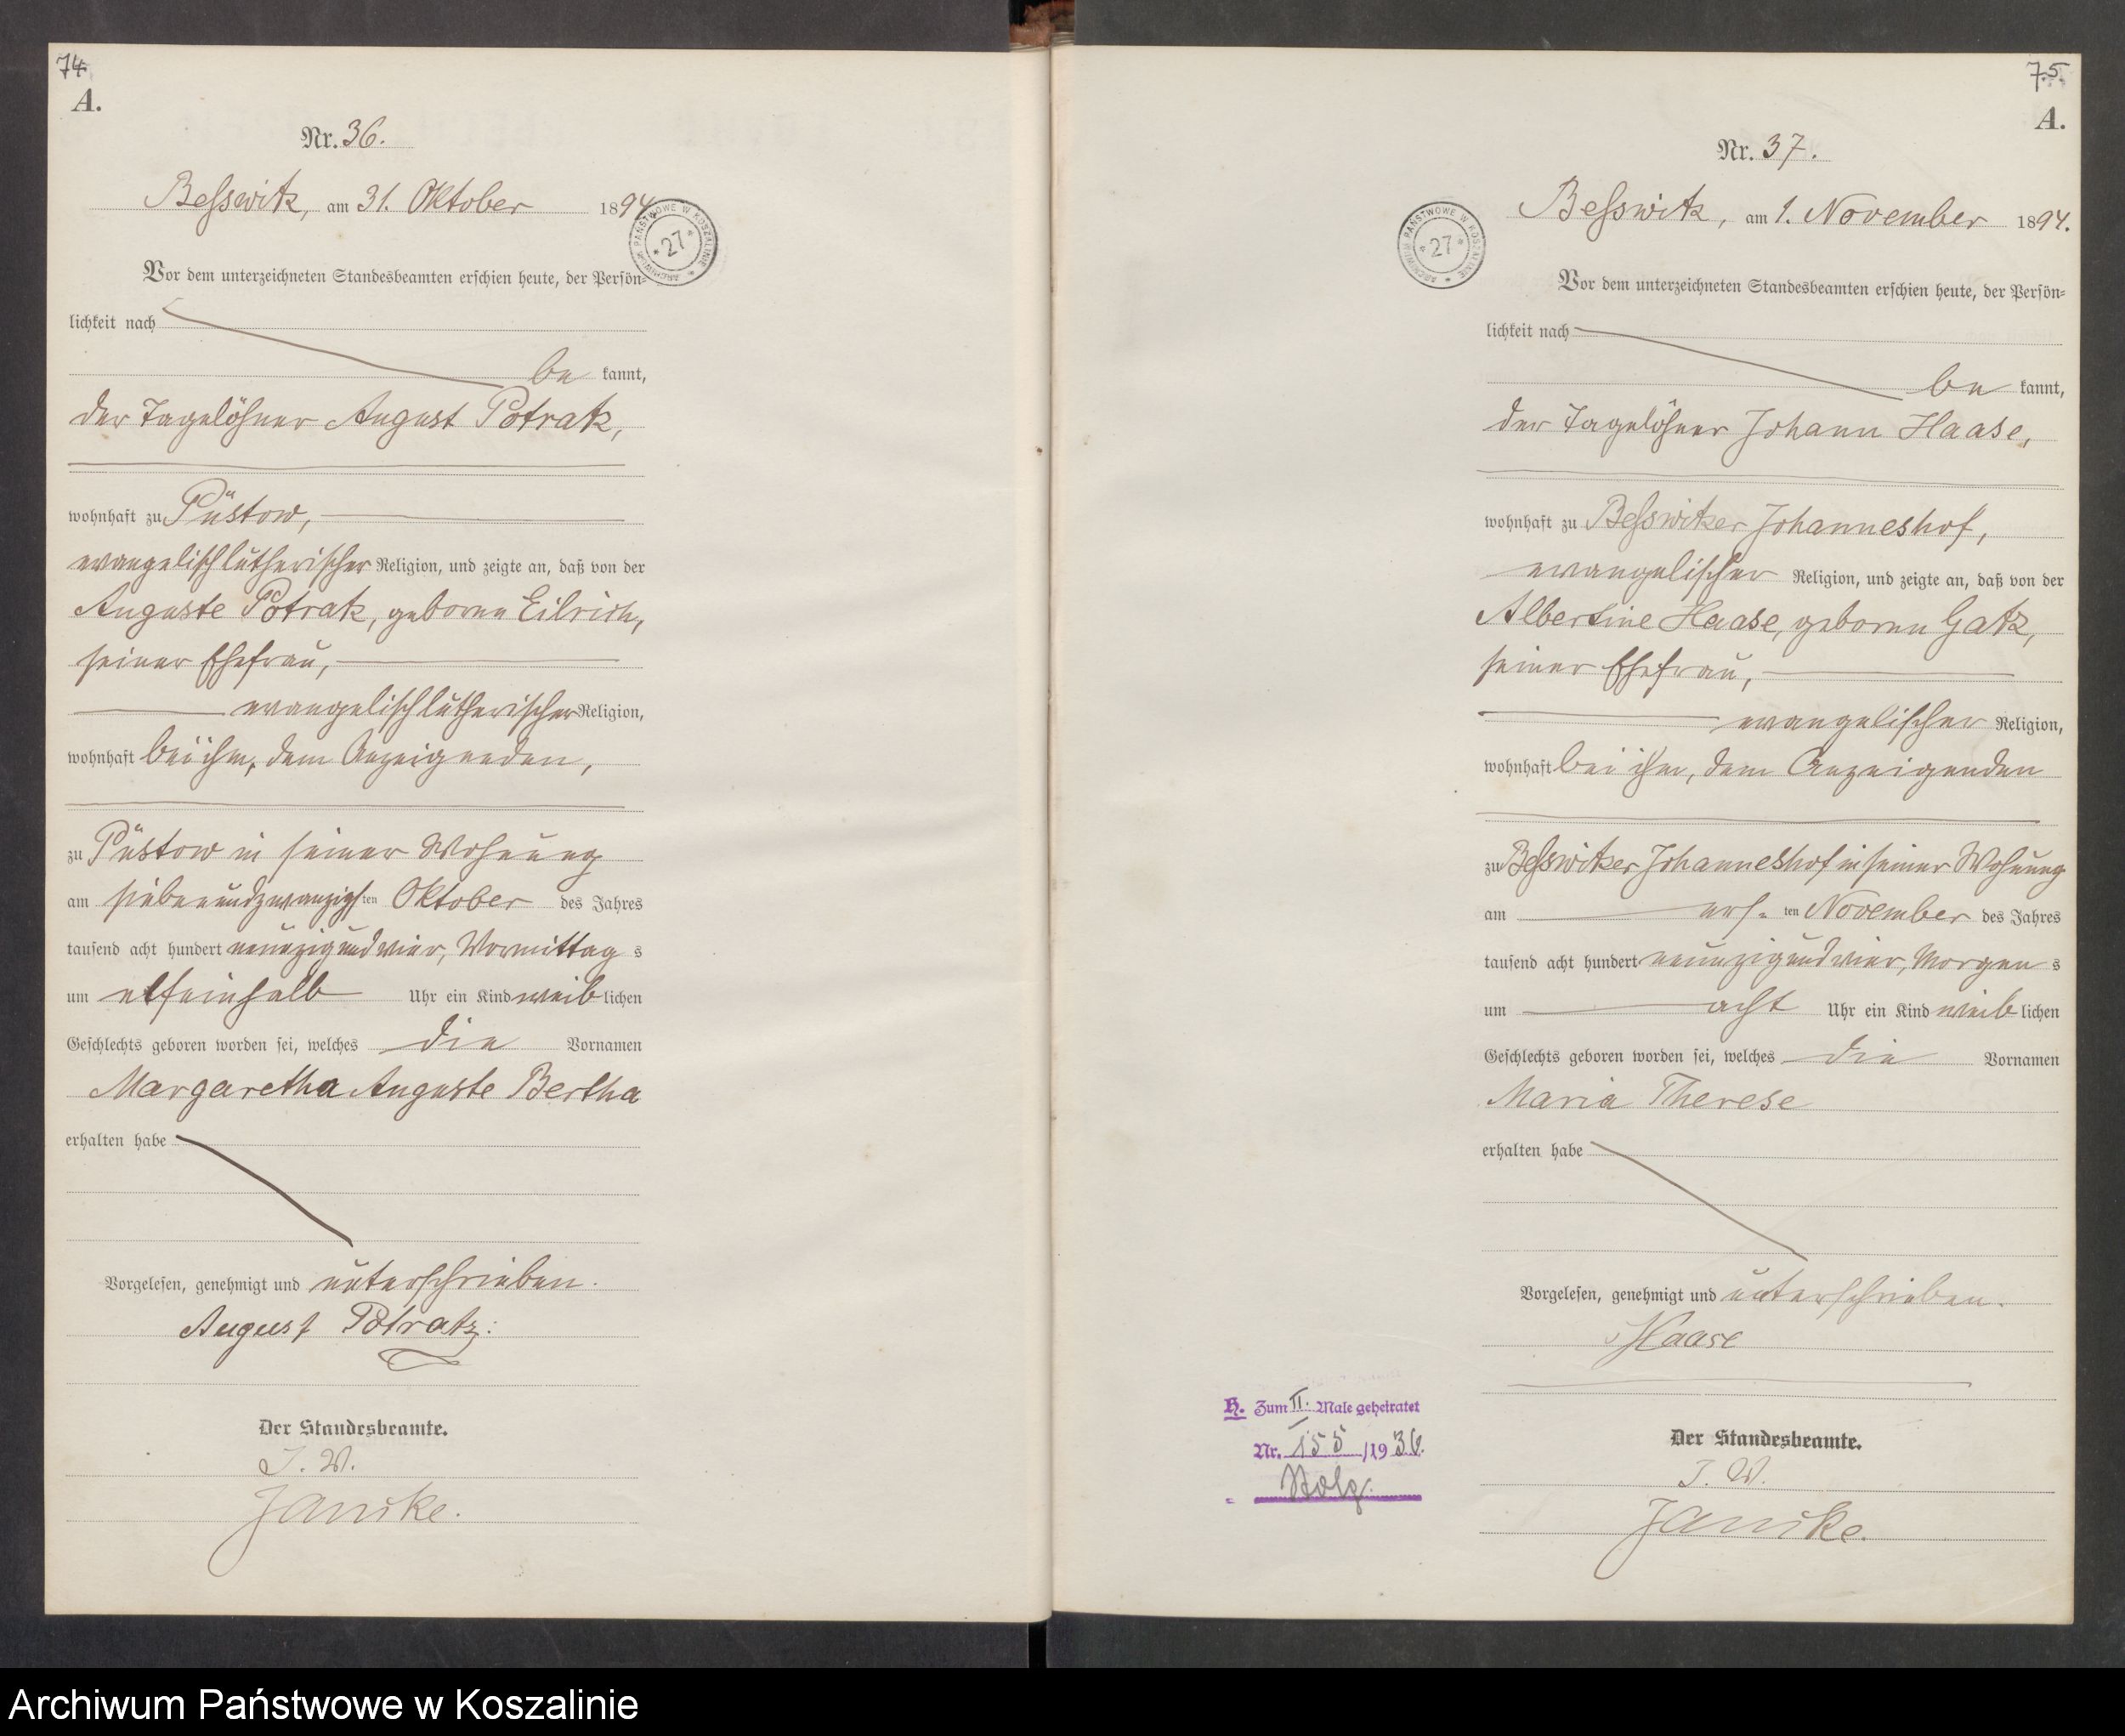 74.
A.
Nr. 36.
Besswitz, am 31. Oktober 1894.
ARCHIWUM PAŃSTWOWE W KOSZALINIE * 27 *
Vor dem unterzeichneten Standesbeamten erschien heute, der Persön=
lichkeit nach
be kannt,
der Tagelöhner August Potratz,
wohnhaft zu Püstow,
evangelisch lutherischer Religion, und zeigte an, daß von der
Auguste Potratz, geborne
seiner Ehefrau,
evangelisch lutherischer Religion,
wohnhaft bei ihm, dem Anzeigenden,
zu Püstow in seiner Wohnung
am siebenundzwanzigsten Oktober des Jahres
tausend acht hundert neunzig und vier, Vormittags
um elfeinhalb Uhr ein Kind weiblichen
Geschlechts geboren worden sei, welches die Vornamen
Margaretha Auguste Bertha
erhalten habe
Vorgelesen, genehmigt und unterschrieben.
August Potratz.
Der Standesbeamte.
J. V.
Janike.
75.
A.
Nr. 37.
Besswitz, am 1. November 1894.
ARCHIWUM PAŃSTWOWE W KOSZALINIE * 27 *
Vor dem unterzeichneten Standesbeamten erschien heute, der Persön=
lichkeit nach
be kannt,
der Tagelöhner Johann Haase,
wohnhaft zu Besswitzer Johanneshof,
evangelischer Religion, und zeigte an, daß von der
Albertine Haase, geborne Gatz,
seiner Ehefrau,
evangelischer Religion,
wohnhaft bei ihm, dem Anzeigenden
zu Besswitzer Johanneshof in seiner Wohnung
am ersten November des Jahres
tausend acht hundert neunzig und vier, Morgens
um acht Uhr ein Kind weiblichen
Geschlechts geboren worden sei, welches die Vornamen
Maria Therese
erhalten habe
Vorgelesen, genehmigt und unterschrieben.
Haase
H. Zum II. Male geheiratet
Nr. 155/1936.
Stolp.
Der Standesbeamte.
J. V.
Janike.
Archiwum Państwowe w Koszalinie